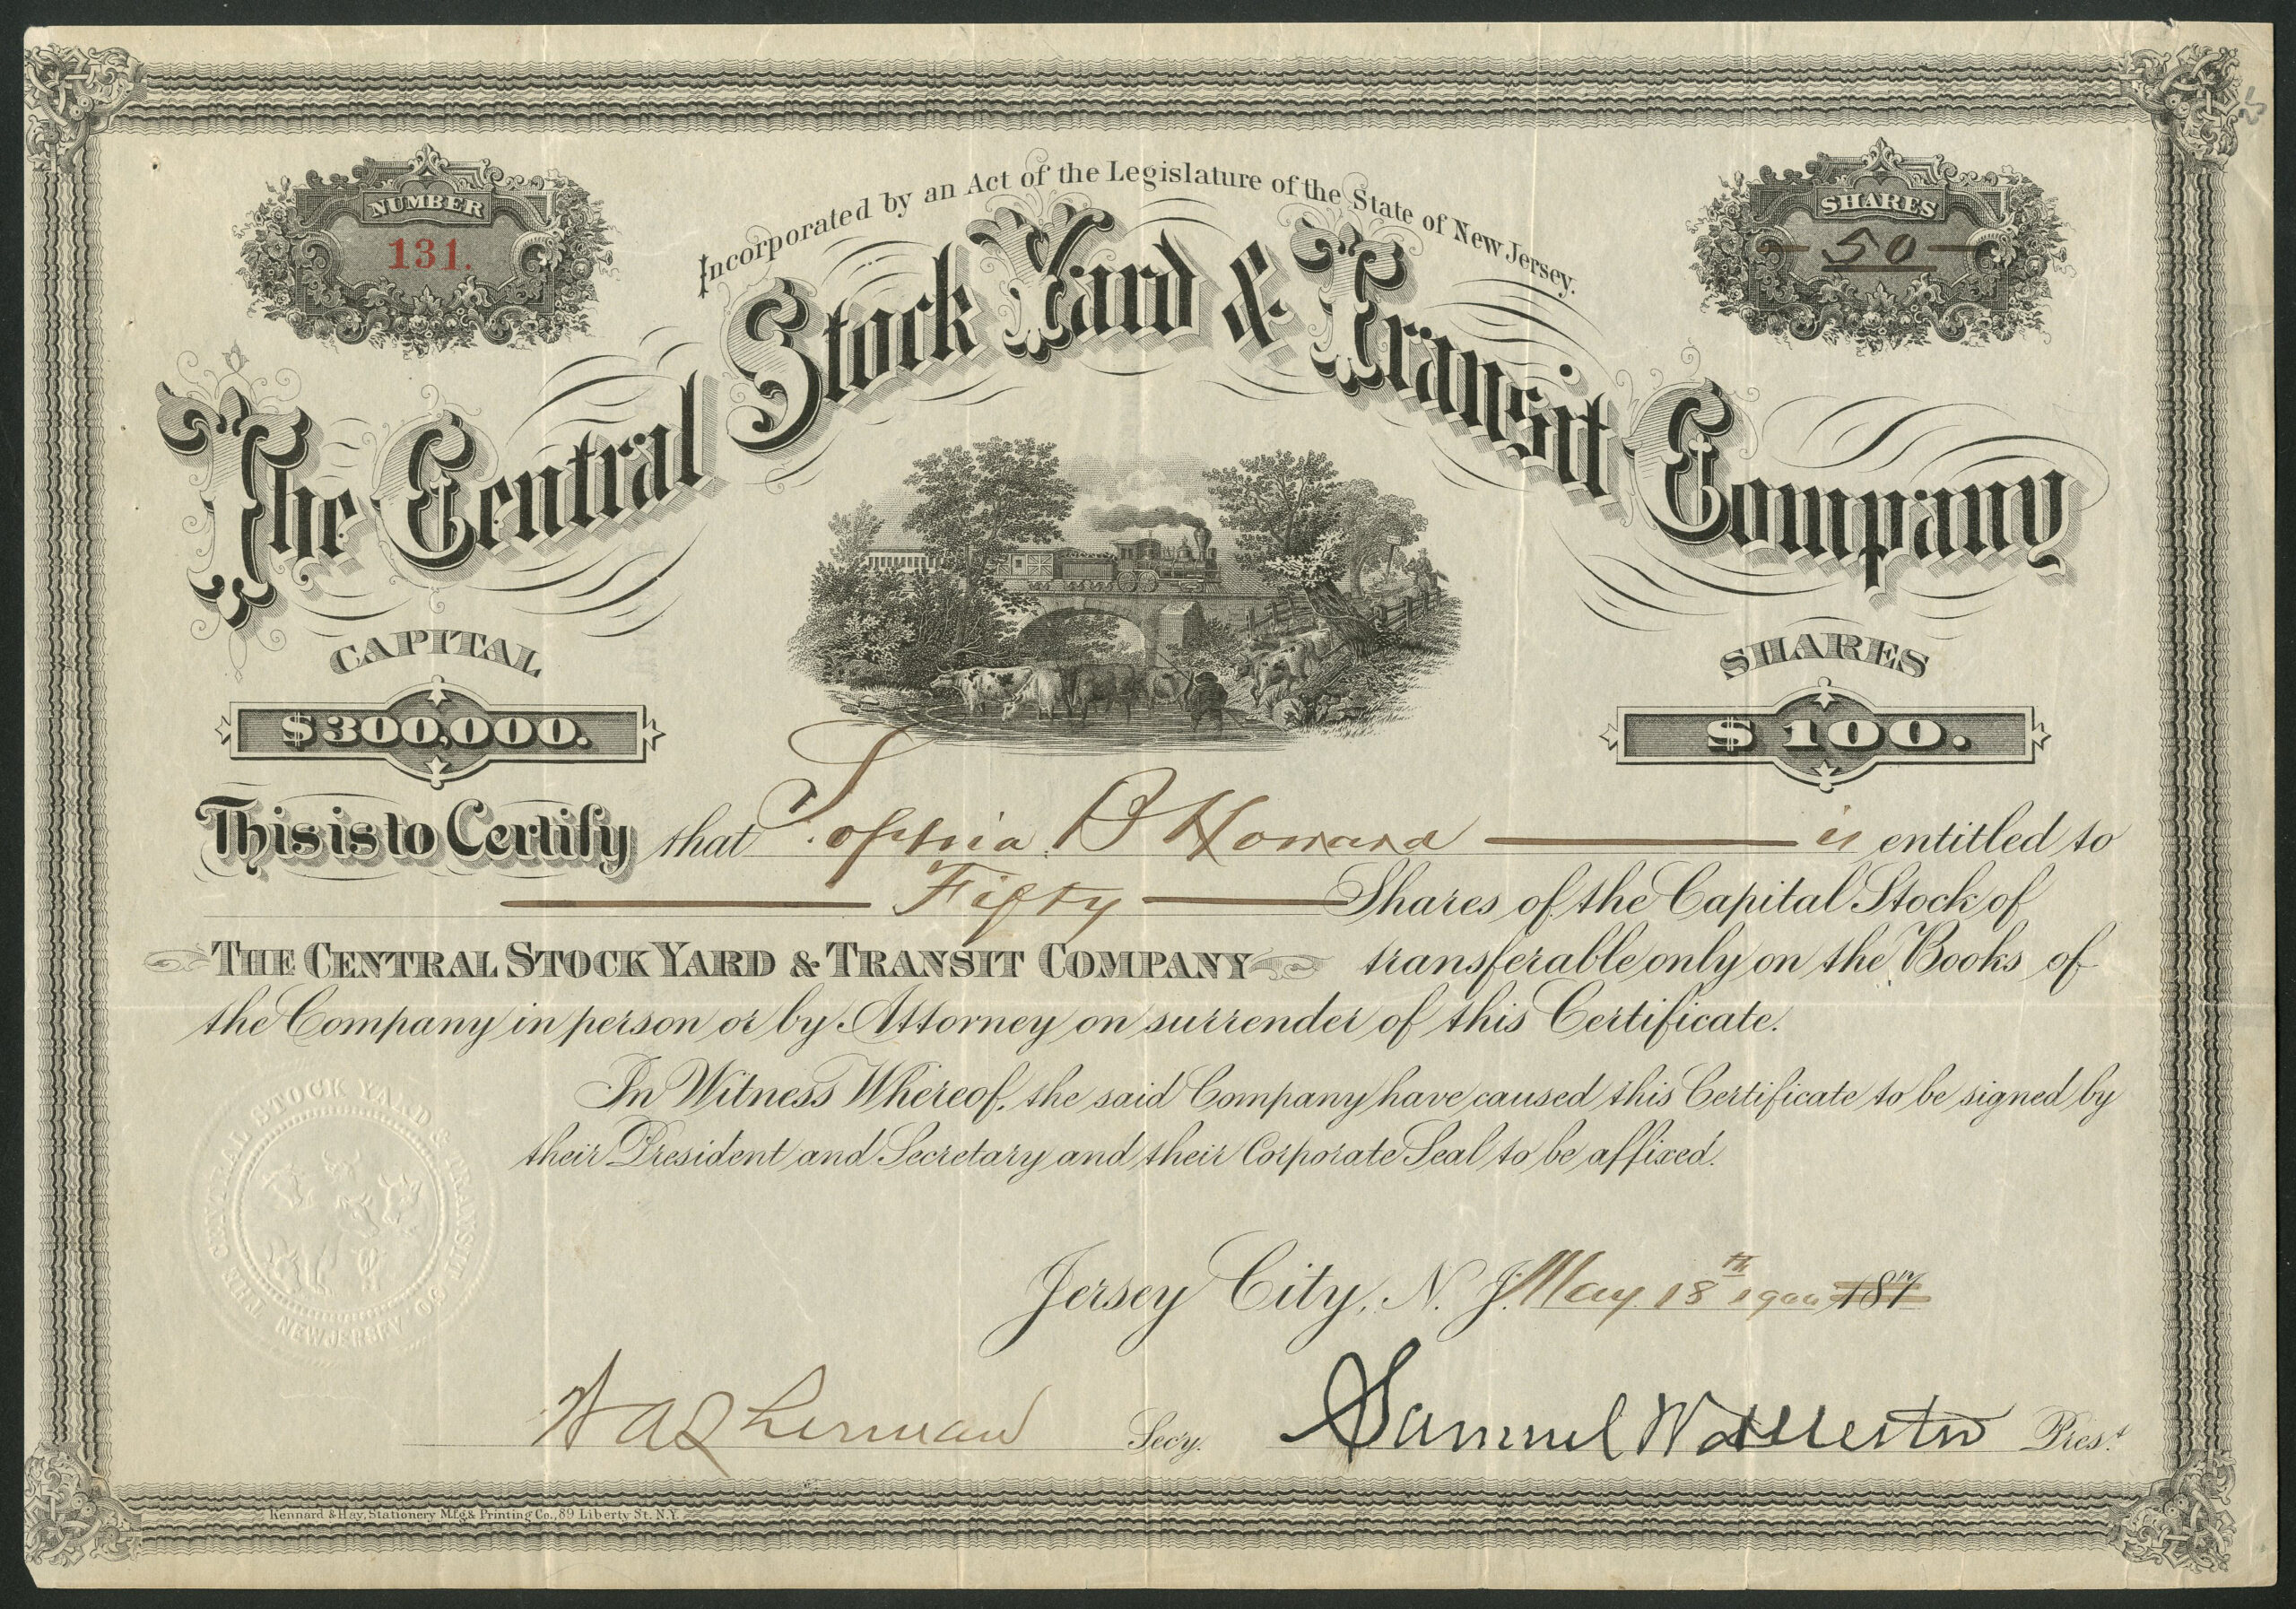 NUMBER
131.
Incorporated by an Act of the Legislature of the State of New Jersey.
SHARES
50
The Central Stock Yard & Transit Company
CAPITAL
$300,000.
SHARES
$100.
This is to Certify that Sophia B Howard is entitled to
Fifty Shares of the Capital Stock of
THE CENTRAL STOCK YARD & TRANSIT COMPANY transferable only on the Books of
the Company in person or by Attorney on surrender of this Certificate.
In Witness Whereof, the said Company have caused this Certificate to be signed by
their President and Secretary and their Corporate Seal to be affixed.
THE CENTRAL STOCK YARD & TRANSIT CO
NEW JERSEY
Jersey City, N. J. May 18th 1900 187
Secy.
Samuel Pres.t
Kennard & Hay, Stationery M.f.g & Printing Co., 89 Liberty St. N.Y.